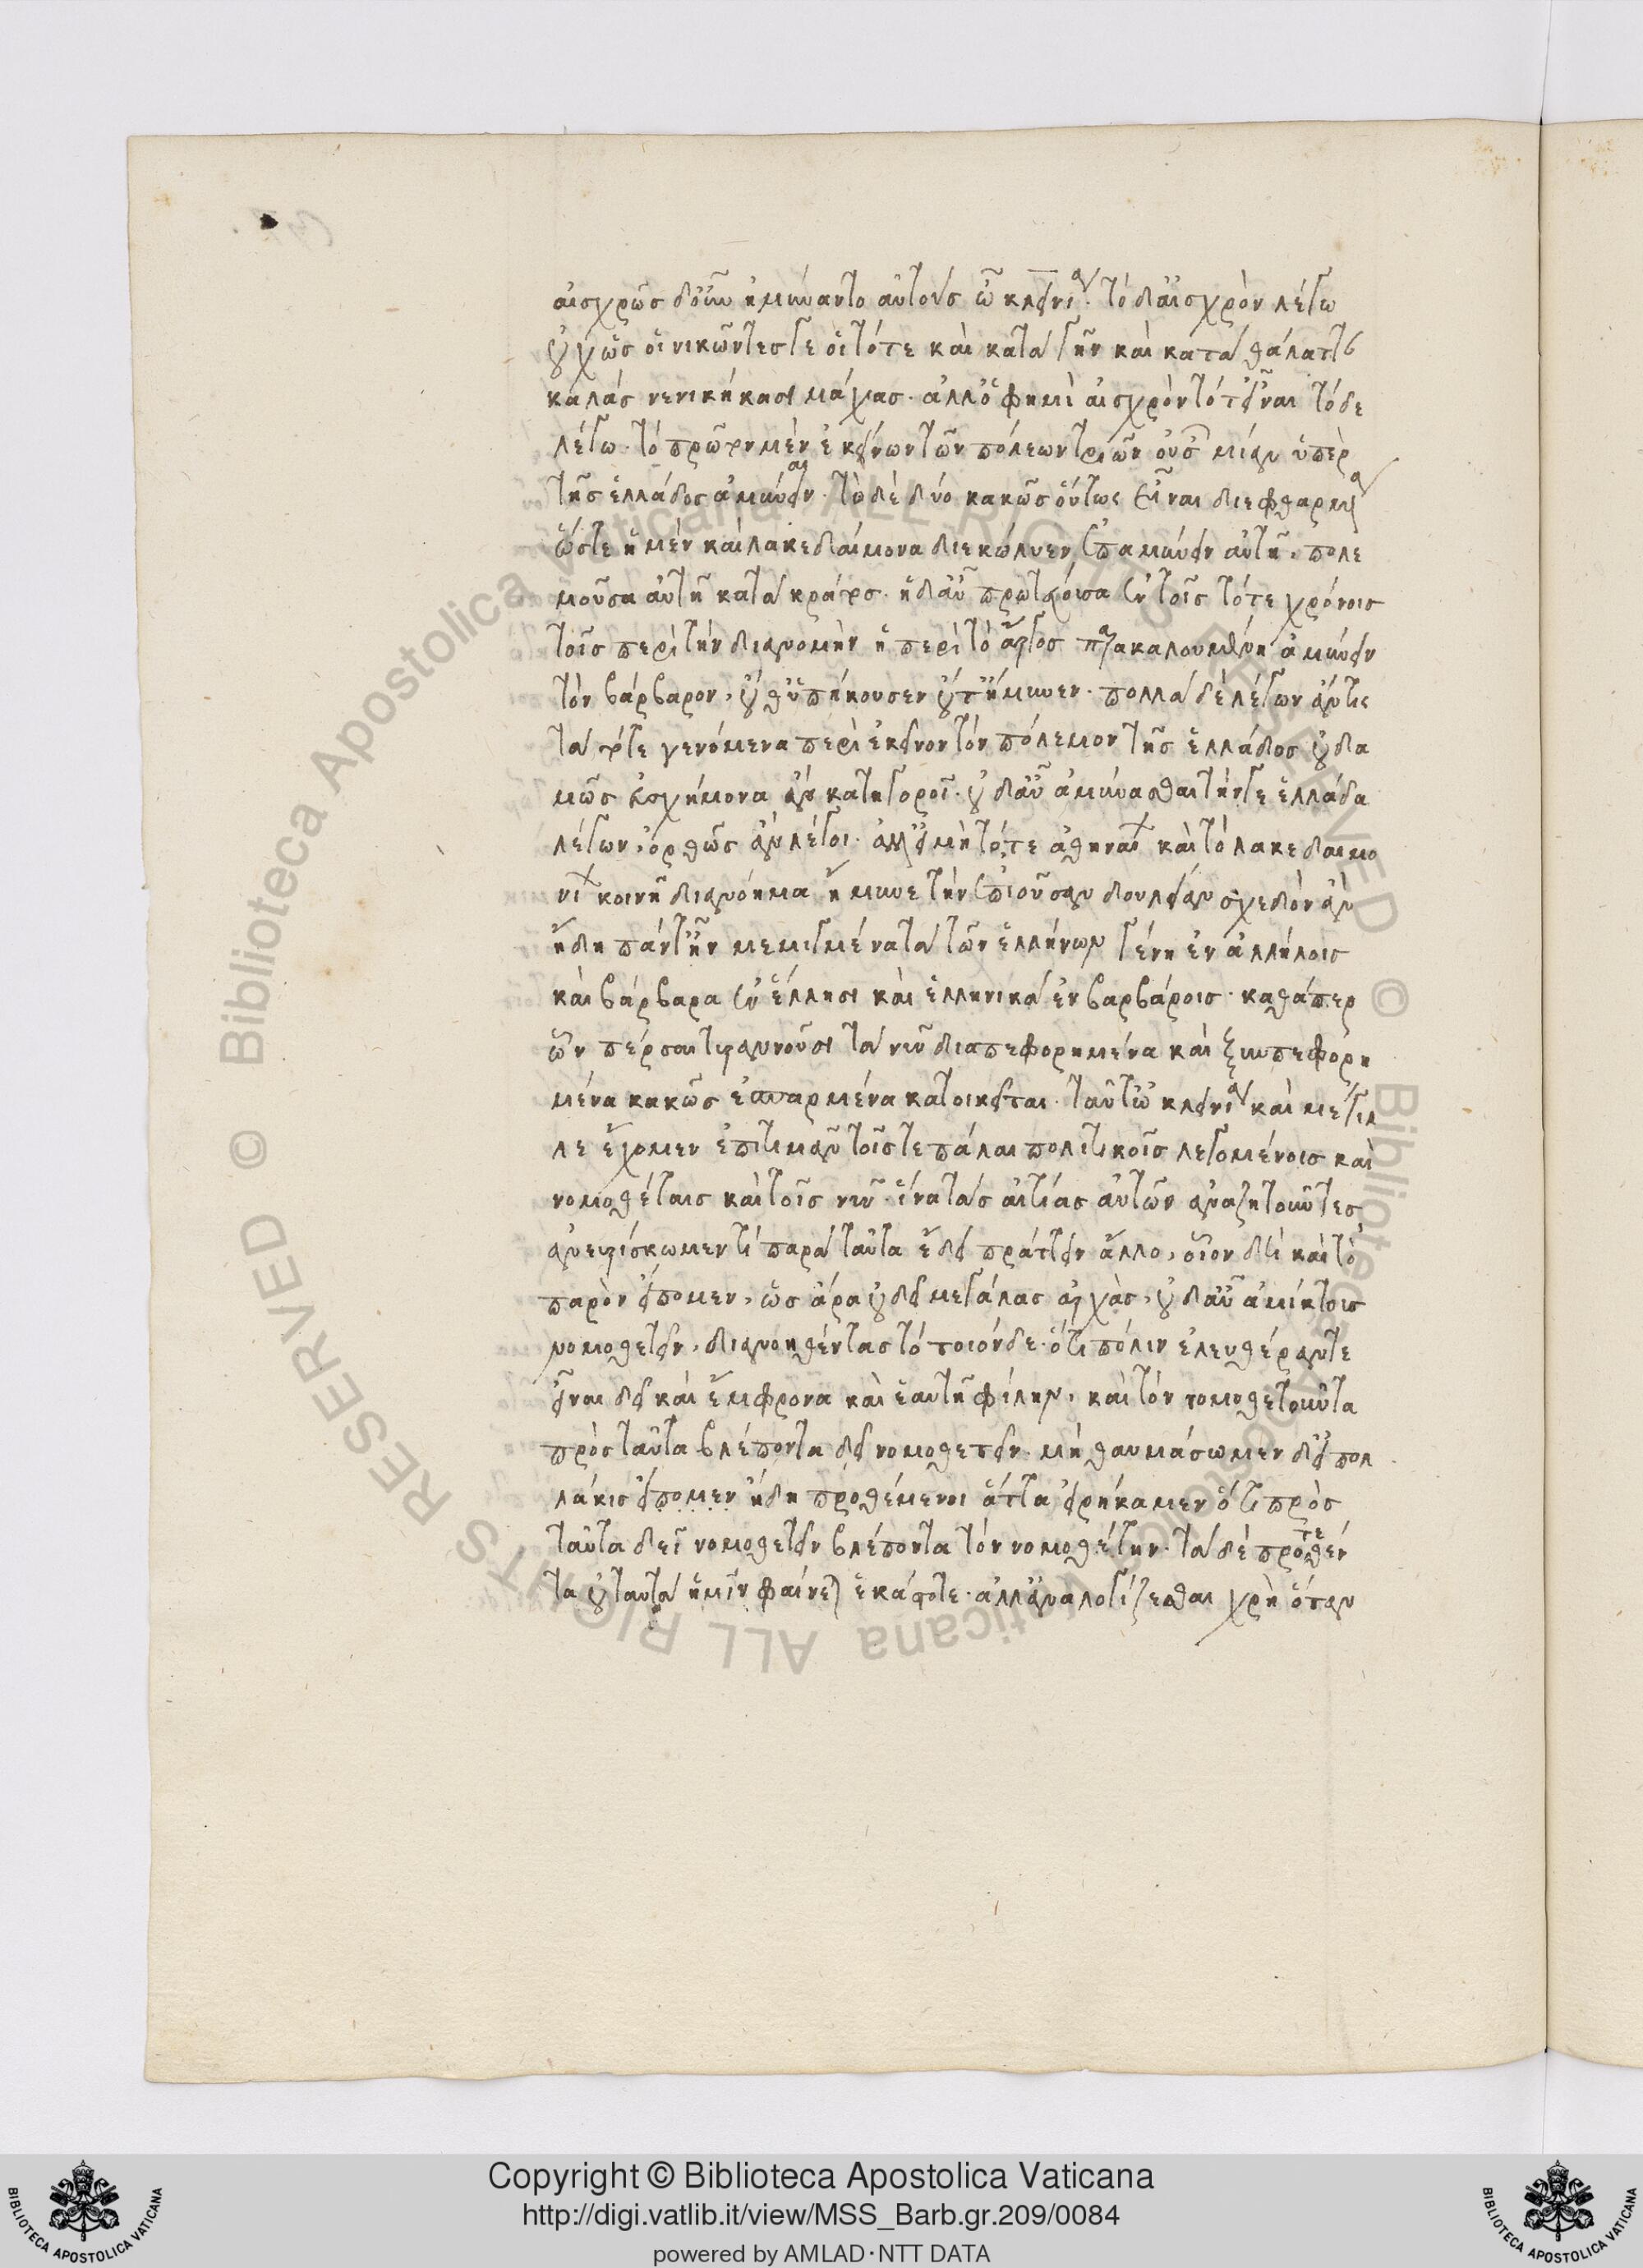 αἰσχρῶς δ' οὖν ἠμύναντο αὐτοὺς ὦ κλεινία. τὸ δ' αἰσχρὸν λέγω
οὐχ ὡς οἱ νικῶντές γε οἱ τότε καὶ κατὰ γῆν καὶ κατὰ θάλατταν
καλὰς νενικήκασι μάχας. ἀλλ' ὅ φημι αἰσχρὸν τότ' εἶναι τόδε
λέγω. τὸ πρῶτον μὲν ἐκείνων τῶν πόλεων τριῶν οὐσῶν μίαν ὑπὲρ
τῆς ἑλλάδος ἀμύναι. τὼ δὲ δύο κακῶς οὕτως εἶναι διεφθαρμένα
ὥστε ἡ μὲν καὶ λακεδαίμονα διεκώλυεν ἐπαμύνειν αὐτῇ, πολε
μοῦσα αὐτῇ κατὰ κράτος. ἡ δ' αὖ πρωτεύουσα ἐν τοῖς τότε χρόνοις
τοῖς περὶ τὴν διανομὴν ἡ περὶ τὸ ἄργος παρακαλουμένη ἀμύνειν
τὸν βάρβαρον, οὔθ' ὑπήκουσεν οὔτ' ἤμυνεν. πολλὰ δὲ λέγων ἄν τις
τὰ τότε γενόμενα περὶ ἐκεῖνον τὸν πόλεμον τῆς ἑλλάδος οὐδα
μῶς εὐσχήμονα ἂν κατηγοροῖ. οὐδ' αὖ ἀμύνασθαι τήν γε ἑλλάδα
λέγων, ὀρθῶς ἂν λέγοι. ἀλλ' εἰ μὴ τό, τε ἀθηναίων καὶ τὸ λακεδαιμο
νίων κοινῇ διανόημα ἤμυνε τὴν ἐπιοῦσαν δουλείαν σχεδὸν ἂν
ἤδη πάντ' ἦν μεμιγμένα τὰ τῶν ἑλλήνων γένη ἐν ἀλλήλοις
καὶ βάρβαρα ἐν ἕλλησι καὶ ἑλληνικὰ ἐν βαρβάροις. καθάπερ
ὧν πέρσαι τυραννοῦσι τὰ νῦν διαπεφορημένα καὶ ξυμπεφορη
μένα κακῶς ἐσπαρμένα κατοικεῖται. ταῦτ' ὦ κλεινία καὶ μέγιλ
λε ἔχομεν ἐπιτιμᾶν τοῖς τε πάλαι πολιτικοῖς λεγομένοις καὶ
νομοθέταις καὶ τοῖς νῦν. ἵνα τὰς αἰτίας αὐτῶν ἀναζητοῦντες
ἀνευρίσκωμεν τί παρὰ ταῦτα ἔδει πράττειν ἄλλο, οἷον δὴ καὶ τὸ
παρὸν εἴπομεν, ὡς ἄρα οὐ δεῖ μεγάλας ἀρχὰς, οὐδ' αὖ ἀμίκτους
νομοθετεῖν, διανοηθέντας τὸ τοιόνδε. ὅτι πόλιν ἐλευθέραν τε
εἶναι δεῖ καὶ ἔμφρονα καὶ ἑαυτῇ φίλην, καὶ τὸν νομοθετοῦντα
πρὸς ταῦτα βλέποντα δεῖ νομοθετεῖν. μὴ θαυμάσωμεν δ' εἰ πολ
λάκις εἴπομεν ἤδη προθέμενοι ἄττα εἰρήκαμεν ὅτι πρὸς
ταῦτα δεῖ νομοθετεῖν βλέποντα τὸν νομοθέτην. τὰ δὲ προτεθέν
τα οὐ ταυτὰ ἡμῖν φαίνεται ἑκάστοτε. ἀλλ' ἀναλογίζεσθαι χρὴ ὅταν
Copyright © Biblioteca Apostolica Vaticana
http://digi.vatlib.it/view/MSS_Barb.gr.209/0084
powered by AMLAD·NTT DATA
BIBLIOTECA APOSTOLICA VATICANA
BIBLIOTECA APOSTOLICA VATICANA
© Biblioteca Apostolica Vaticana ALL RIGHTS RESERVED
© Biblioteca Apostolica Vaticana ALL RIGHTS RESERVED